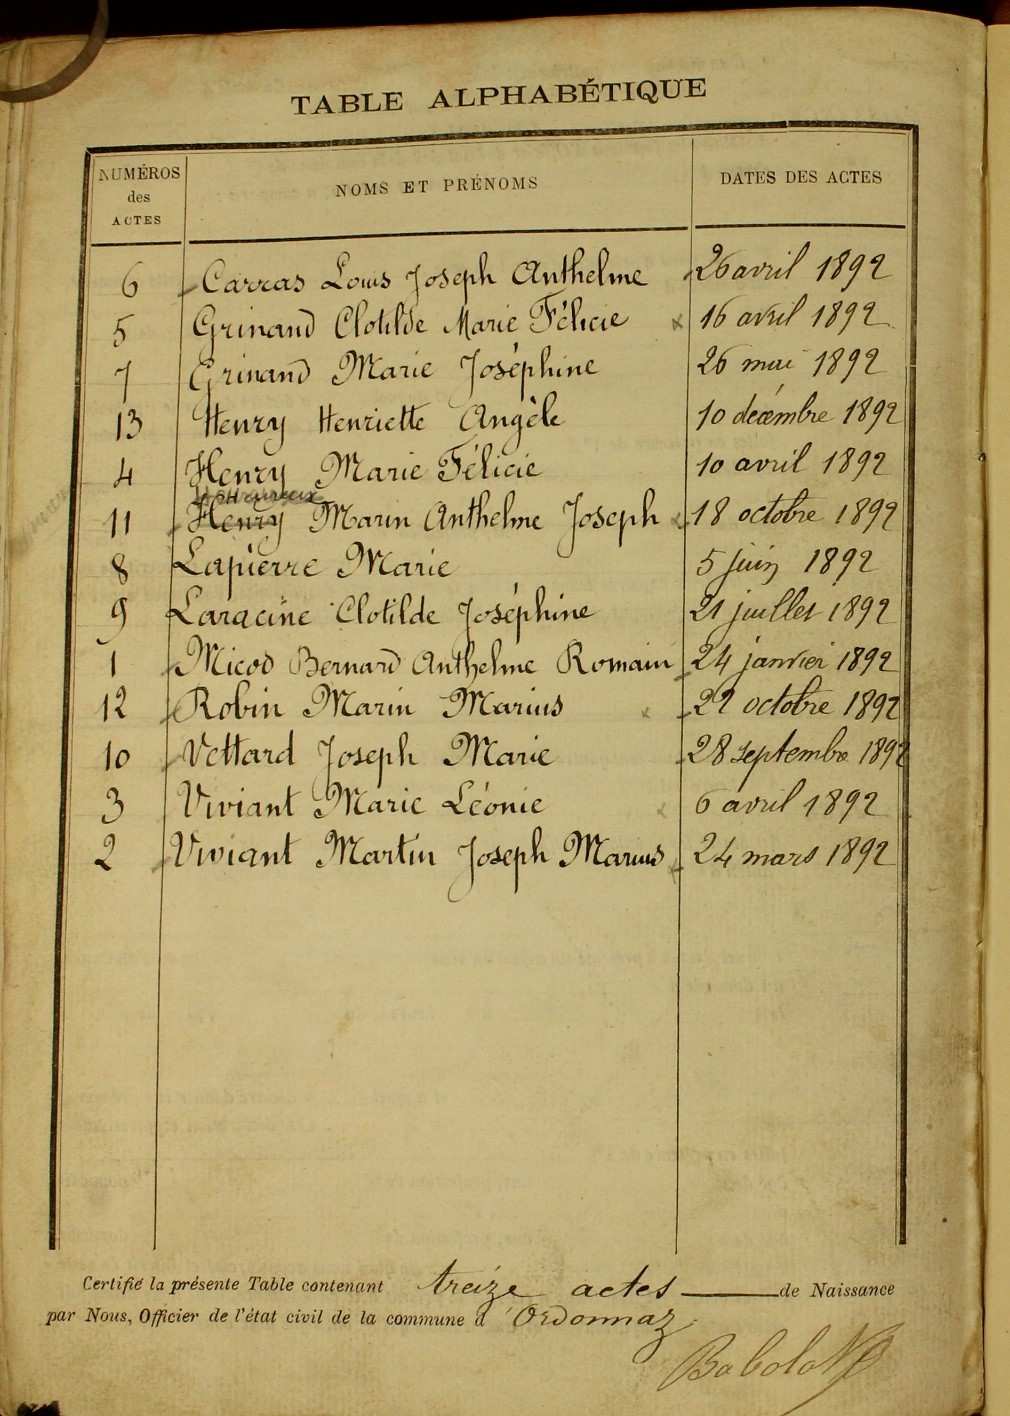 TABLE ALPHABÉTIQUE
NUMÉROS des ACTES NOMS ET PRÉNOMS DATES DES ACTES
6 Carras Louis Joseph Anthelme 26 avril 1892
5 Grinand Clotilde Marie Félicie 16 avril 1892
7 Grinand Marie Joséphine 26 mai 1892
13 Henry Henriette Angèle 10 décembre 1892
4 Henry Marie Félicie 10 avril 1892
11 Henry Marin Anthelme Joseph 18 octobre 1892
8 Lapierre Marie 5 juin 1892
9 Laracine Clotilde Joséphine 21 juillet 1892
1 Micod Bernard Anthelme Romain 24 janvier 1892
12 Robin Marin Marius 22 octobre 1892
10 Vettard Joseph Marie 28 septembre 1892
3 Viviant Marie Léonie 6 avril 1892
2 Viviant Martin Joseph Marius 24 mars 1892
Certifié la présente Table contenant treize actes de Naissance
par Nous, Officier de l'état civil de la commune d'Ordonnaz